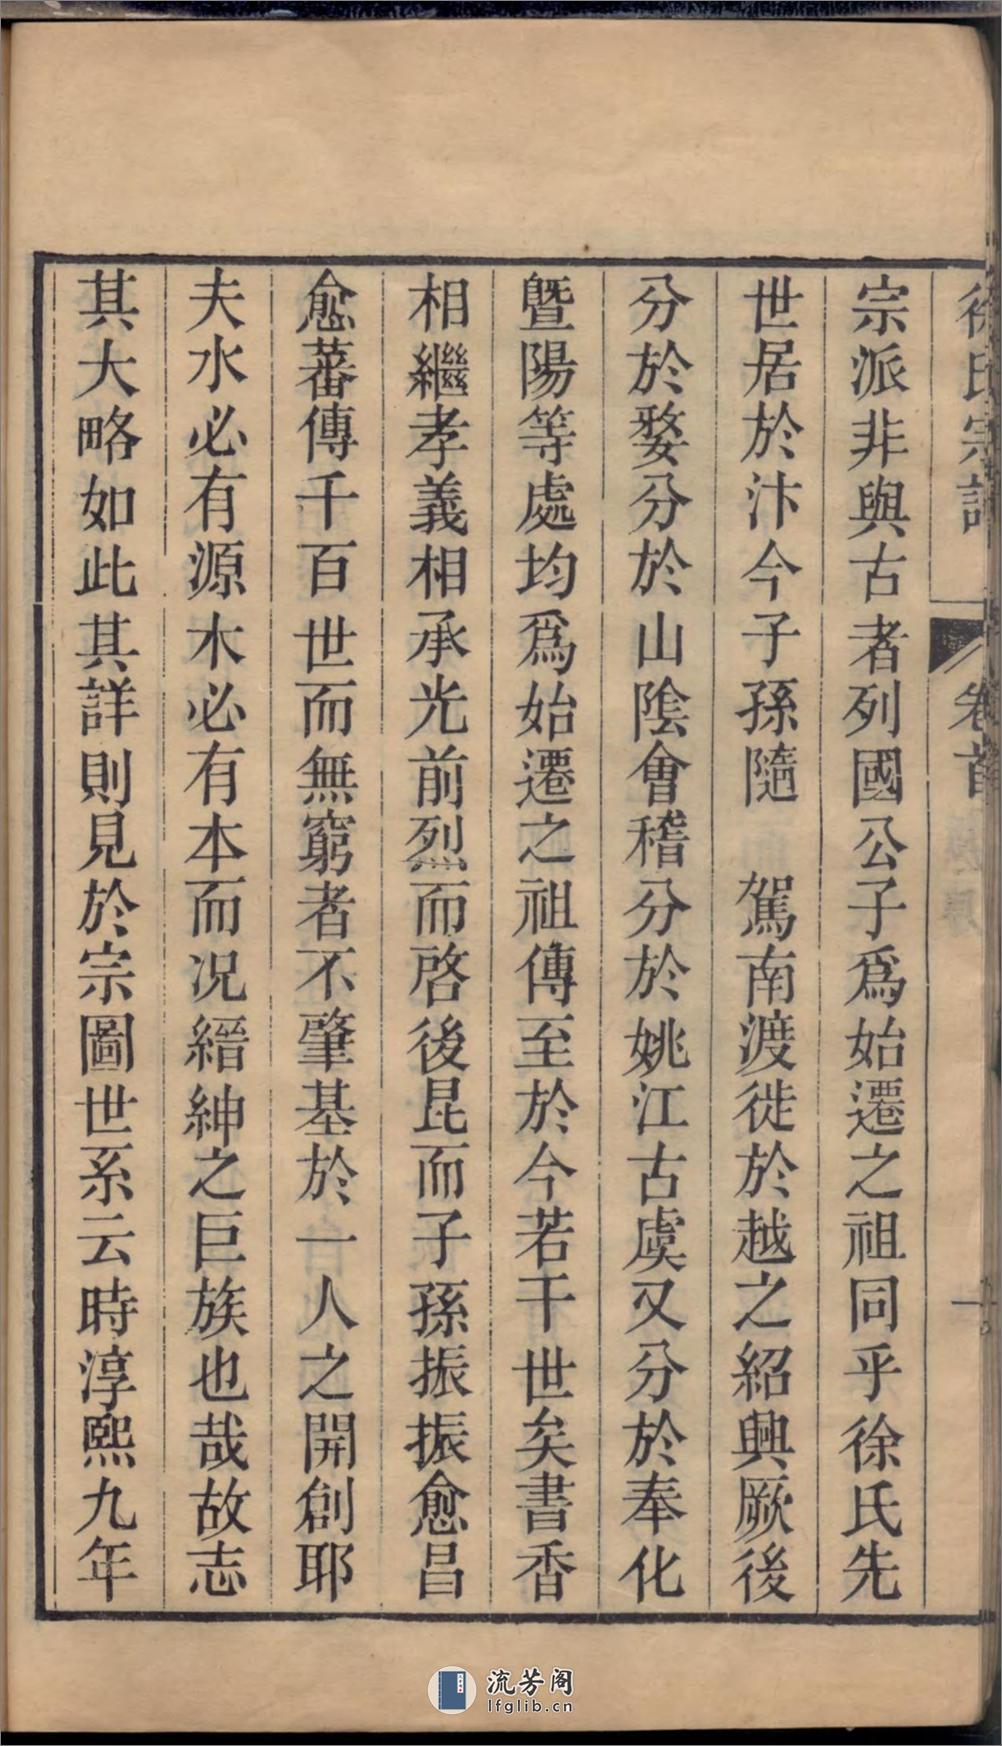 徐氏宗譜
卷首
一
宗派非與古者列國公子爲始遷之祖同乎徐氏先
世居於汴今子孫隨　駕南渡徙於越之紹興厥後
分於婺分於山陰會稽分於姚江古虞又分於奉化
暨陽等處均爲始遷之祖傳至於今若干世矣書香
相繼孝義相承光前烈而啓後昆而子孫振振愈昌
愈蕃傳千百世而無窮者不肇基於一人之開創耶
夫水必有源木必有本而况縉紳之巨族也哉故志
其大略如此其詳則見於宗圖世系云時淳熙九年
流芳阁
lfglib.cn